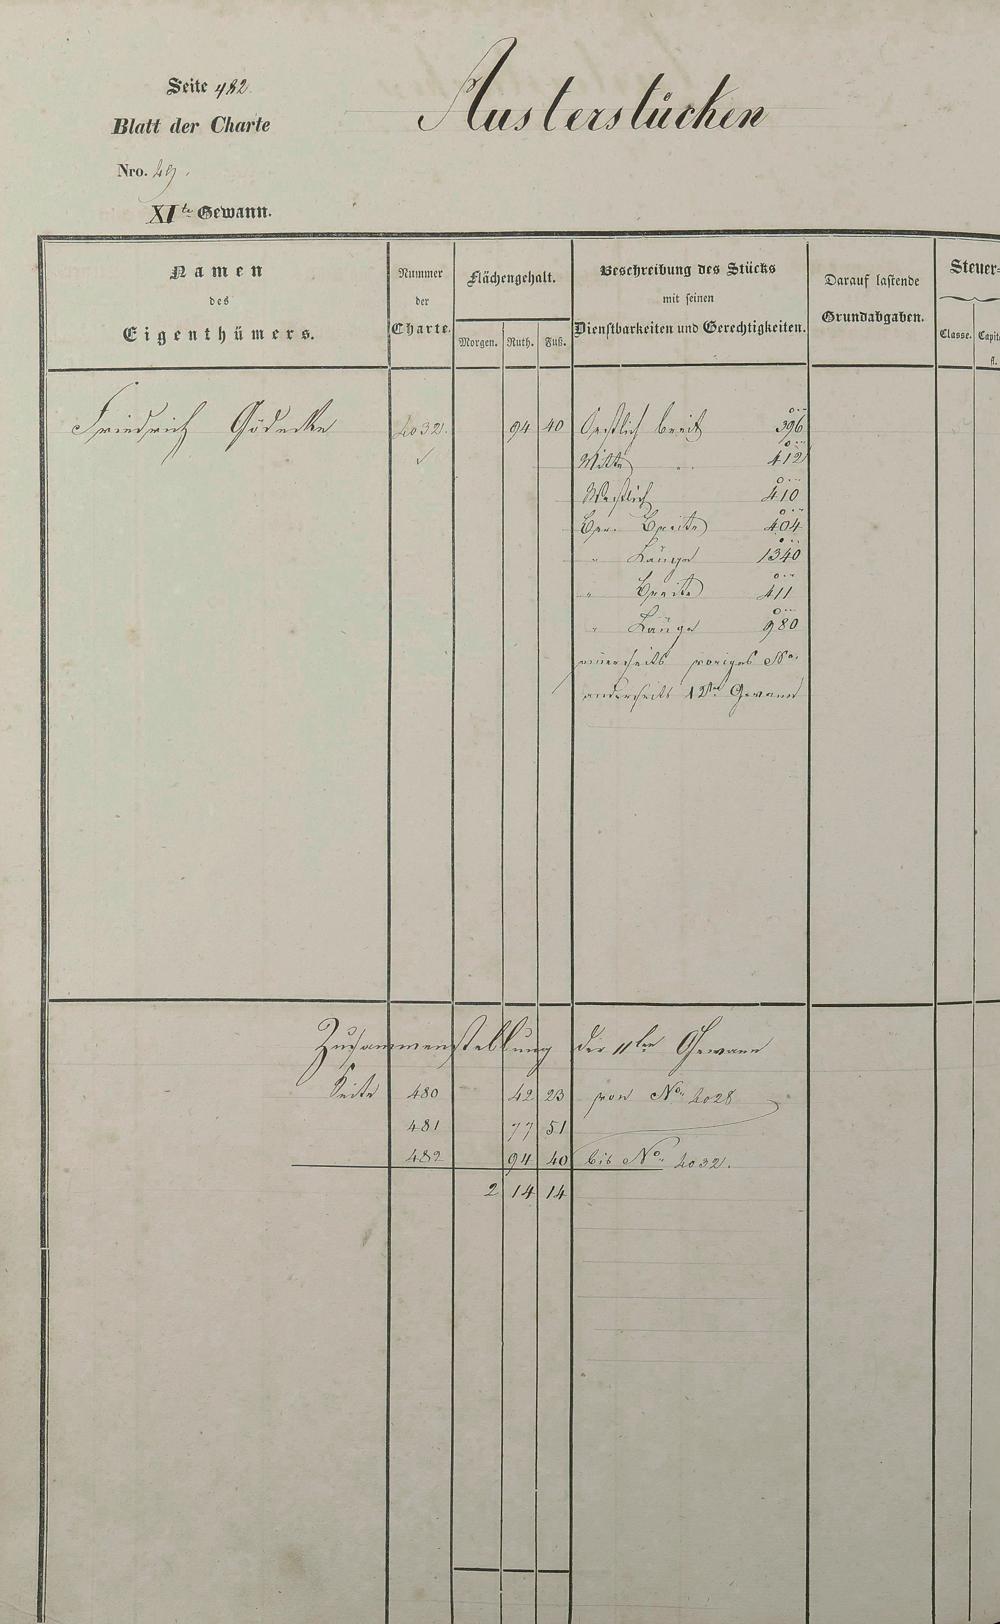 Seite 482.
Austerstücken
Blatt der Charte
Nro. 29.
XIte Gewann.
Namen des Eigenthümers.
Nummer der Charte.
Flächengehalt.
Morgen. Ruth. Fuß.
Beschreibung des Stücks mit seinen Dienstbarkeiten und Gerechtigkeiten.
Darauf lastende Grundabgaben.
Steuer-
Classe. Capit
fl.
Friedrich Gödecke 2032. 94 40 Oestlich breit 396
Mitte " 412
Westlich 410
Ber. Breite 404
" Länge 1340
" Breite 411
" Länge 980
einerseits voriges No.
anderseits 12te Gewann
Zusammenstellung der 11ten Gewann
Seite 480 42 23 von No. 2028
481 77 51
482 94 40 bis No. 2032.
2 14 14